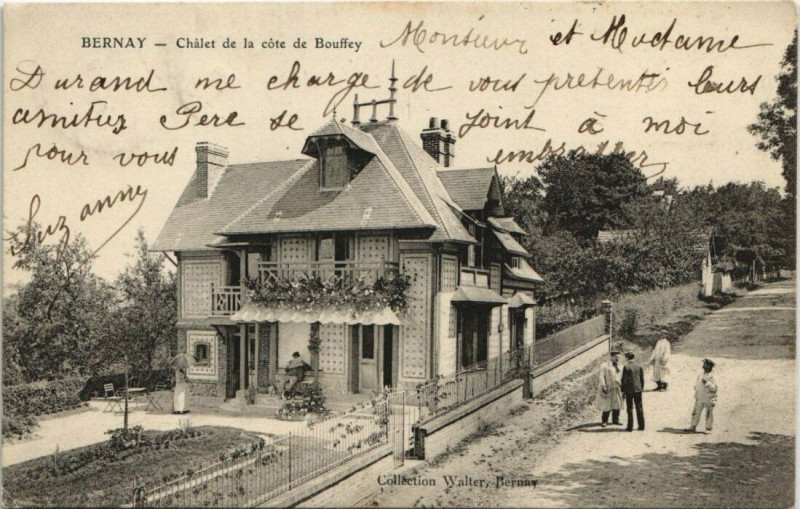 BERNAY — Châlet de la côte de Bouffey
Monsieur et Madame
Durand me charge de vous présenter leurs
amitiés Père se joint à moi
pour vous embrasser
Suzanne
Collection Walter, Bernay